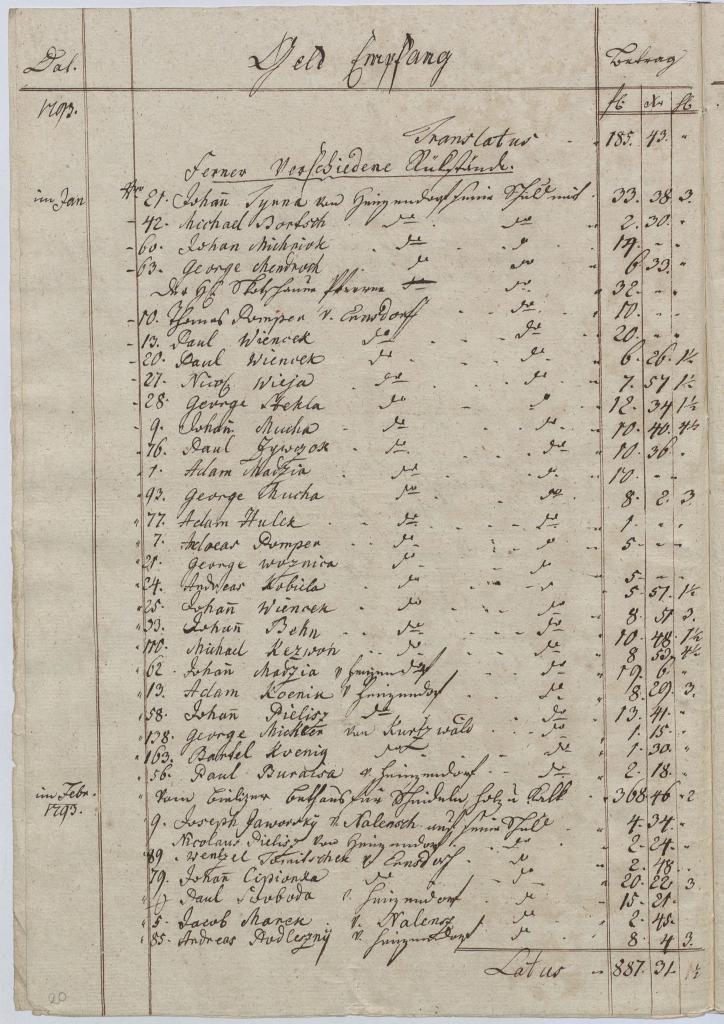 Dat. Geld Empfang Betrag
1793. fl. Xr. ₰
Translatus 185. 43. "
Ferner Verschiedene Rükstände.
im Jan Nro 21. Johañ Tynna von Heinzendorf seine Schuld mit 33. 38 3.
42. Michael Bortsch do do 2. 30. "
60. Johan do do 19. - -
63. George do do 6 33. "
Der H. Pfarrer do 32. - -
10. Thomas Pomper v. Ernsdorf do 10. - -
13. Paul Wiencek do do 20. - -
20. Paul Wiencek do do 6. 26. 1½
27. Nicol Wieja do do 7. 57 1½
28. George Stekla do do 12. 34 1½
9. Johañ. Mucha do do 10. 40. 4½
76. Paul Zywczok do do 10. 36. "
1. Adam Madzia do do 10. - -
93. George Mucha do do 8. 2. 3.
77. Adam Hulek do do 1. " "
7. Andreas Pomper do do 5. - -
21. George Woznica do do 5. - -
24. Andreas Kobiela do do 5. 57. 1½
25. Johañ Wiencek do do 8. 51 3.
33. Johañ Behn do do 10. 48. 1½
170. Michael Kezwoń do do 8 52. 4½
62. Johañ Madzia v Heinzendorf do 19. 6 "
13. Adam Koenig v Heinzendorf do 8. 29. 3.
58. Johañ Pielisz do do 13. 41. "
138. George von Kurtzwald do 1. 15. "
163. Bartel Koenig do do 1. 30. "
56. Paul Buralsa v Heinzendorf do 2. 18. "
im Febr. 1793. Vom Bielizer Bethaus für Schindeln holz u Kalk 368. 46 2
9. Joseph Jaworsky v. Nalensch auf seine Schuld 4. 34. "
Nicolaus Pielisz von Heinzendorf do 2. 24. "
89. Wentzel Tomitschek v Ernsdorf do 2. 48. "
79. Johañ Cipionka do do 20. 22. 3
Paul Swoboda v. Heinzendorf do 15. 21. "
5. Jacob Marek v. Nalensz do 2. 45. "
85. Andreas Podleszny v. Heinzendorf do 8. 4 3.
Latus 887. 31. 1½
20